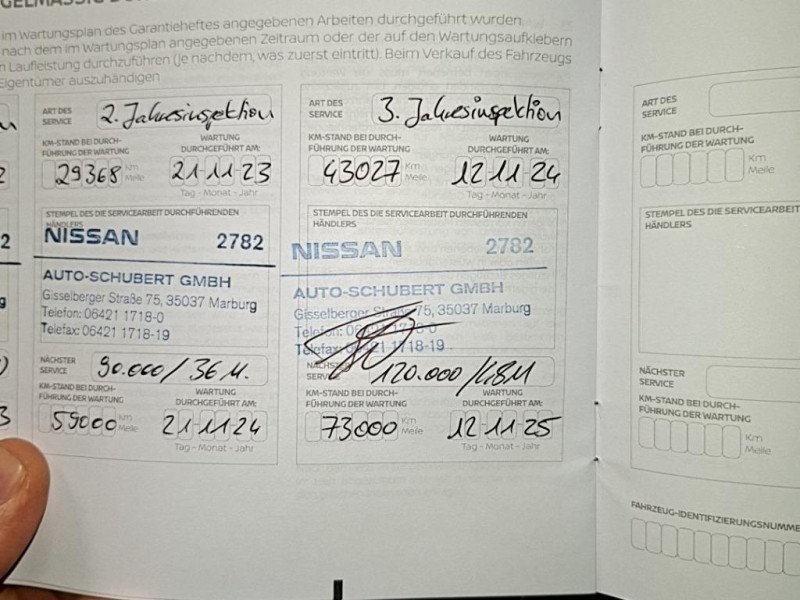 im Wartungsplan des Garantieheftes angegebenen Arbeiten durchgeführt wurden
nach dem im Wartungsplan angegebenen Zeitraum oder der auf den Wartungsaufklebern
Laufleistung durchzuführen (je nachdem, was zuerst eintritt). Beim Verkauf des Fahrzeugs
Eigentümer auszuhändigen
ART DES SERVICE
2. Jahresinspektion
KM-STAND BEI DURCH-
FÜHRUNG DER WARTUNG
29368 Km
Meile
WARTUNG
DURCHGEFÜHRT AM:
21-11-23
Tag - Monat - Jahr
STEMPEL DES DIE SERVICEARBEIT DURCHFÜHRENDEN
HÄNDLERS
NISSAN 2782
AUTO-SCHUBERT GMBH
Gisselberger Straße 75, 35037 Marburg
Telefon: 06421 1718-0
Telefax: 06421 1718-19
NÄCHSTER SERVICE
90.000/36M.
KM-STAND BEI DURCH-
FÜHRUNG DER WARTUNG
59000 Km
Meile
WARTUNG
DURCHGEFÜHRT AM:
21-11-24
Tag - Monat - Jahr
ART DES SERVICE
3. Jahresinspektion
KM-STAND BEI DURCH-
FÜHRUNG DER WARTUNG
43027 Km
Meile
WARTUNG
DURCHGEFÜHRT AM:
12-11-24
Tag - Monat - Jahr
STEMPEL DES DIE SERVICEARBEIT DURCHFÜHRENDEN
HÄNDLERS
NISSAN 2782
AUTO-SCHUBERT GMBH
Gisselberger Straße 75, 35037 Marburg
Telefon: 06421 1718-0
Telefax: 06421 1718-19
SERVICE
120.000/48M
KM-STAND BEI DURCH-
FÜHRUNG DER WARTUNG
73000 Km
Meile
WARTUNG
DURCHGEFÜHRT AM:
12-11-25
Tag - Monat - Jahr
ART DES
SERVICE
KM-STAND BEI DURCH-
FÜHRUNG DER WARTUNG
Km
Meile
STEMPEL DES DIE SERVICEARBEIT
HÄNDLERS
NÄCHSTER
SERVICE
KM-STAND BEI DURCH-
FÜHRUNG DER WARTUNG
Km
Meile
FAHRZEUG-IDENTIFIZIERUNGSNUMME